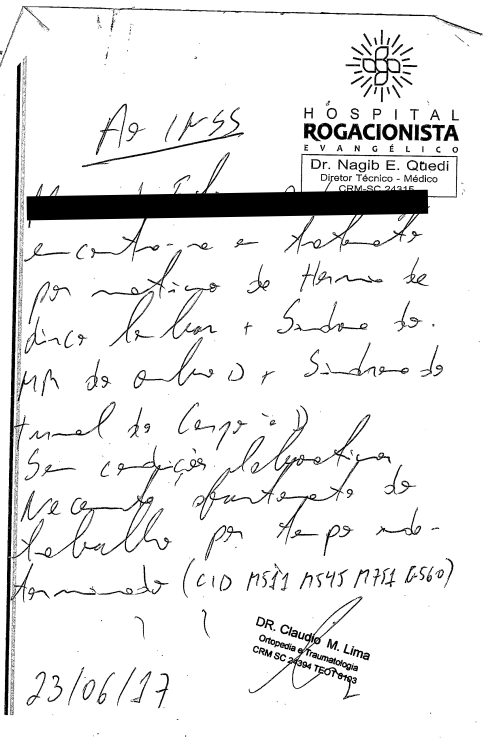 HOSPITAL
ROGACIONISTA
EVANGÉLICO
Dr. Nagib E. Quedi
Diretor Técnico - Médico
CRM-SC 24315
Ao INSS
encontra-se em tratamento
por motivo de Hernia de
disco lombar + Sindrome do
MR do ombro D + Sindrome do
tunel do Carpo D
Sem condições laborativas
Necessita afastamento do
trabalho por tempo inde-
terminado (CID M511 M545 M751 G560)
DR. Claudio M. Lima
Ortopedia e Traumatologia
CRM SC 24394 TEOT 9193
23/06/17